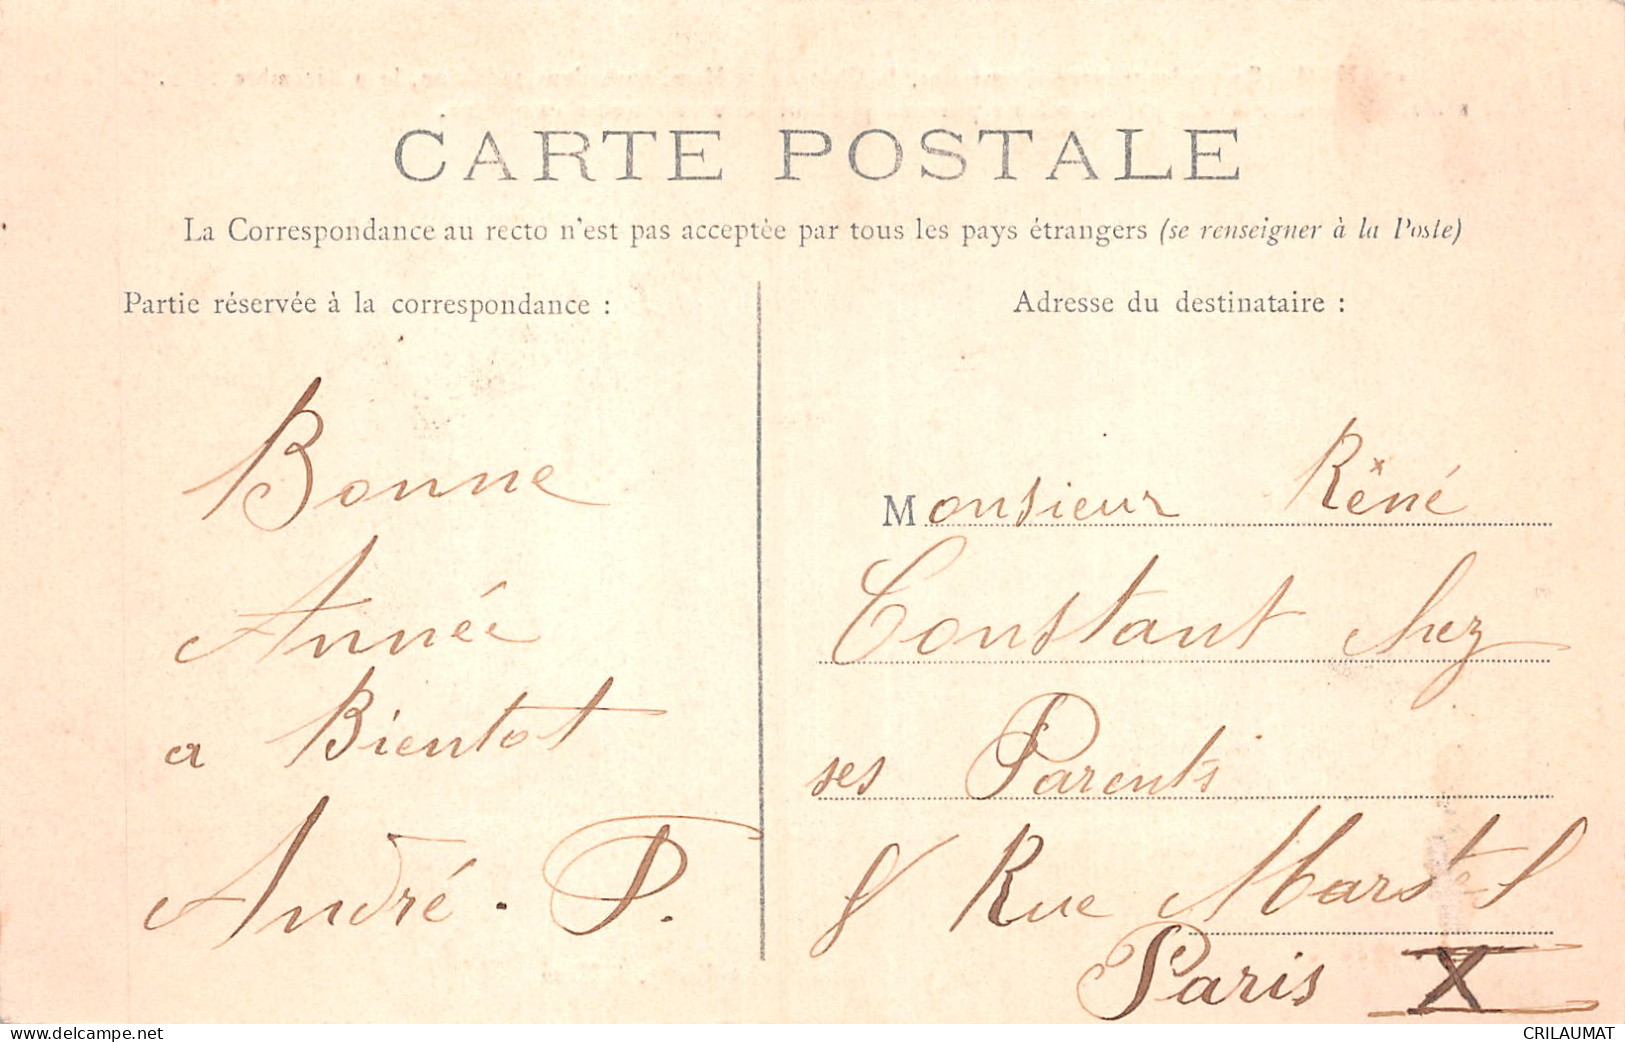 CARTE POSTALE
La Correspondance au recto n'est pas acceptée par tous les pays étrangers (se renseigner à la Poste)
Partie réservée à la correspondance :
Bonne
Année
a Bientot
André. P.
Adresse du destinataire :
Monsieur Rêné
Constant chez
ses Parents
8 Rue Martel
Paris X
www.delcampe.net
CRILAUMAT